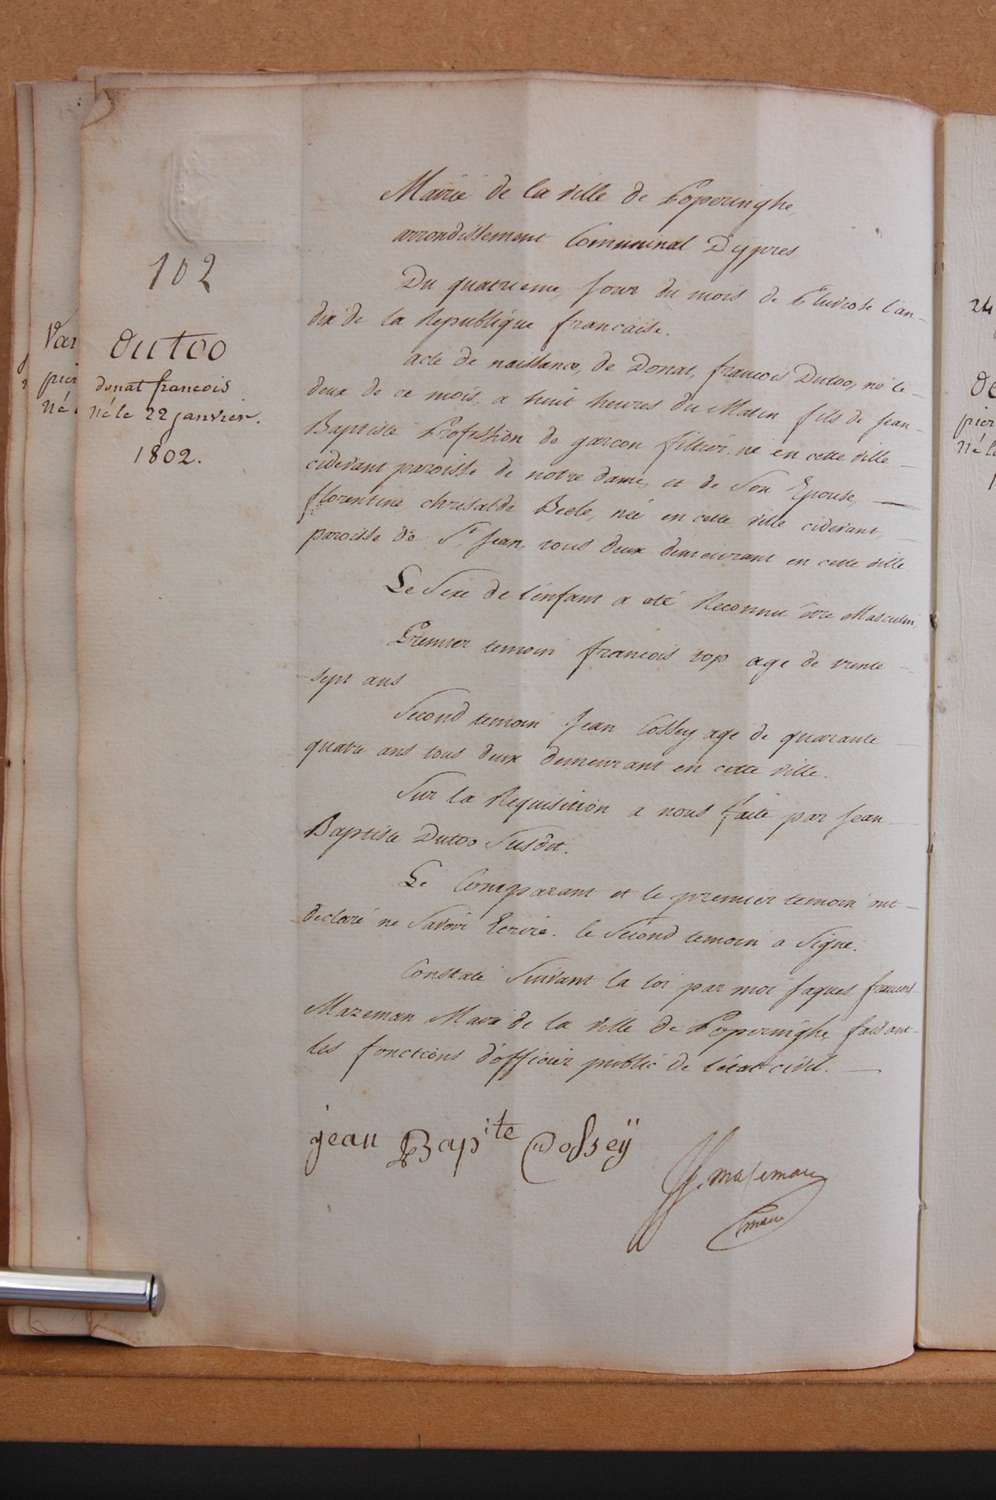 102
Dutoo
donat francois
Né le 22 janvier.
1802.
Mairie de la ville de Poperinghe,
arrondissement Communal Dypres
Du quatrieme jour du mois de Pluviose l'an
dix de la Republique francaise.
acte de naissance, de Donat, francois Dutoo, né le
deux de ce mois, a huit heures du Matin fils de Jean
Baptiste Profession de garcon filtier, né en cette ville
cidevant paroisse de notre dame, et de Son Epouse,
florentine chrisalde Beele, née en cette ville cidevant,
paroisse de St Jean, tous deux demeurant en cette ville
Le Sexe de l'enfant a eté Reconnu être Masculin
Premier temoin francois top age de trente
sept ans
Second temoin Jean Cossey age de quarante
quatre ans tous deux demeurant en cette ville.
Sur la Requisition a nous faite par Jean
Baptiste Dutoo Susdit.
Le Comparant et le premier temoin ont
declaré ne Savoir Ecrire. le Second temoin a Signe.
Constaté Suivant la loi par moi Jaques francois
Mazeman Maire de la ville de Poperinghe faisant
les fonctions d'officier public de l'etat civil.
jean Bapite Cosseÿ
JJ. mazeman
maire
Var
pier
Né
24
De
pier
Né le